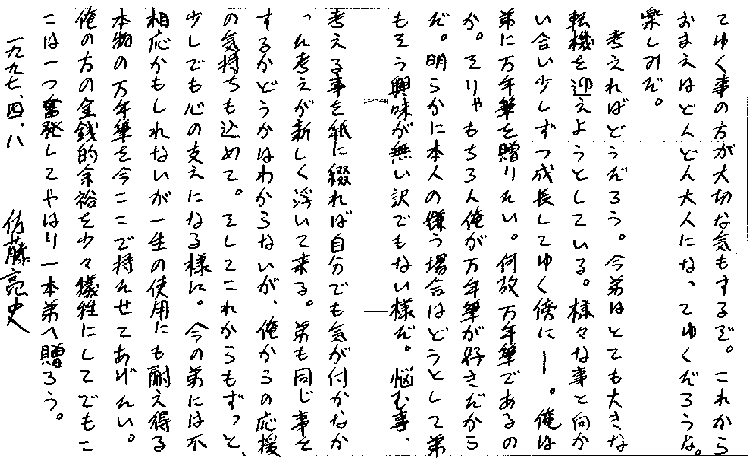 てゆく事の方が大切な気もするぞ。これから
おまえはどんどん大人になってゆくだろうな。
楽しみだ。
考えればどうだろう。今弟はとても大きな
転機を迎えようとしている。様々な事と向か
い合い少しずつ成長してゆく傍に一。俺は
弟に万年筆を贈りたい。何故万年筆であるの
か。そりゃもちろん俺が万年筆が好きだから
だ。明らかに本人の嫌う場合はどうとして弟
もそう興味が無い訳でもない様だ。悩む事、
考える事を紙に綴れば自分でも気が付かなか
った考えが新しく浮いて来る。弟も同じ事を
するかどうかはわからないが、俺からの応援
の気持ちも込めて。そしてこれからもずっと、
少しでも心の支えになる様に。今の弟には不
相応かもしれないが一生の使用にも耐え得る
本物の万年筆を今ここで持たせてあげたい。
俺の方の金銭的余裕を少々犠牲にしてでもこ
こは一つ奮発してやはり一本弟へ贈ろう。
一九九七.四.八 佐藤亮史